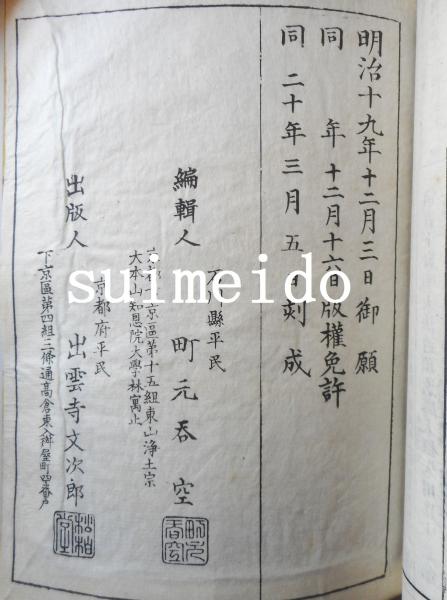 明治十九年十二月三日御願
同 年 十二月十六日版權免許
同 二十年三月五日刻成
石川縣平民
編輯人 町元吞空
京都下京區第十五組東山淨土宗
大本山知恩院大學林寓止
京都府平民
出版人 出雲寺文次郎
下京區第四組三條通高倉東入桝屋町
町元吞空
松柏堂
suimeido